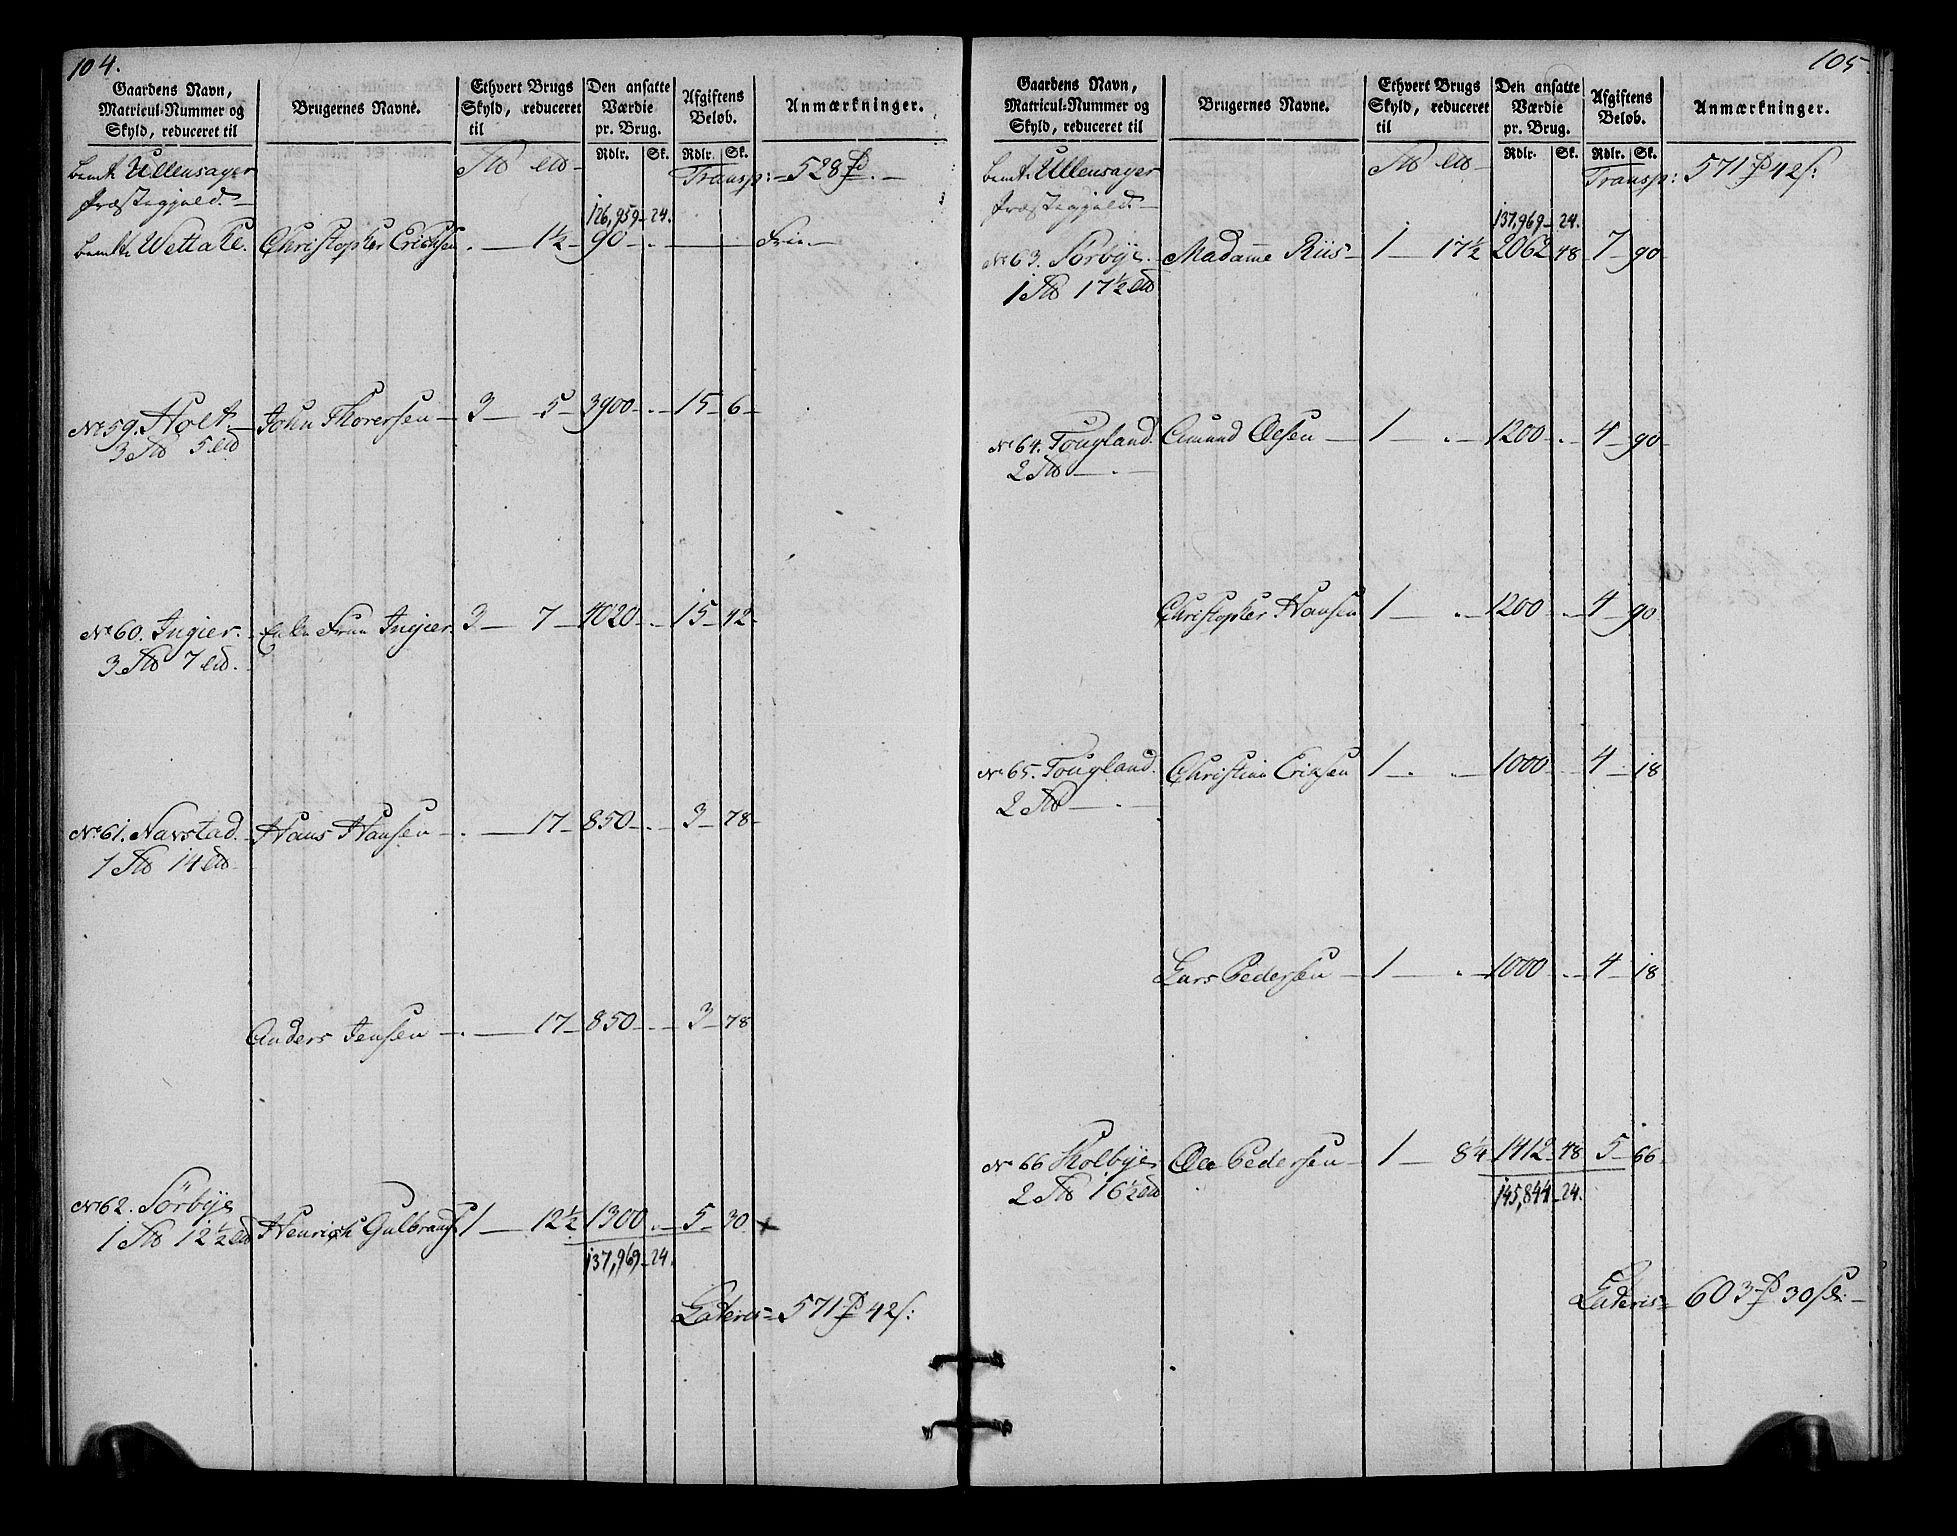 104.
Gaardens Navn, Matricul-Nummer og Skyld, reduceret til | Brugernes Navne. | Ethvert Brugs Skyld, reduceret til | Den ansatte Værdie pr. Brug. | Afgiftens Beløb. | Anmærkninger.
Rdlr. | Sk. | Rdlr. | Sk.
bemte Ullensager Transp: 528
Præstegjeld.
126,959 24.
bemte Wettahl. Christopher Erichsen . 1½ 90 . Frie
No 59. Holt. John Thorersen 3 5 3900 . 15 6
3 5
No 60. Ingier. Enke Frue Ingier. 3 7 4020 . 15 42
3 7
No 61. Navstad. Hans Hansen . 17 850 . 3 78
1 14
Anders Jensen . 17 850 . 3 78
No 62. Sörbye
1 12½ Henrich Gulbrands 1 12½ 1300 . 5 30
137,969 24.
Lateris 571 42 s:
105.
Gaardens Navn, Matricul-Nummer og Skyld, reduceret til | Brugernes Navne. | Ethvert Brugs Skyld, reduceret til | Den ansatte Værdie pr. Brug. | Afgiftens Beløb. | Anmærkninger.
Rdlr. | Sk. | Rdlr. | Sk.
bemte Ullensager Transp: 571 42 s:
Præstegjeld
137,969 24.
No 63. Sörbye. Madame Riis 1 17½ 2062 48 7 90
1 17½
No 64. Tougland. Amund Olsen 1 . 1200 . 4 90
2 .
Christopher Hansen 1 . 1200 . 4 90
No 65. Tougland. Christian Eriksen 1 . 1000 . 4 18
2 .
Lars Pedersen 1 . 1000 . 4 18
No 66 Holbye Ole Pedersen 1 8¼ 1412 48 5 66
2 16½
145,844 24.
Lateris 603 30